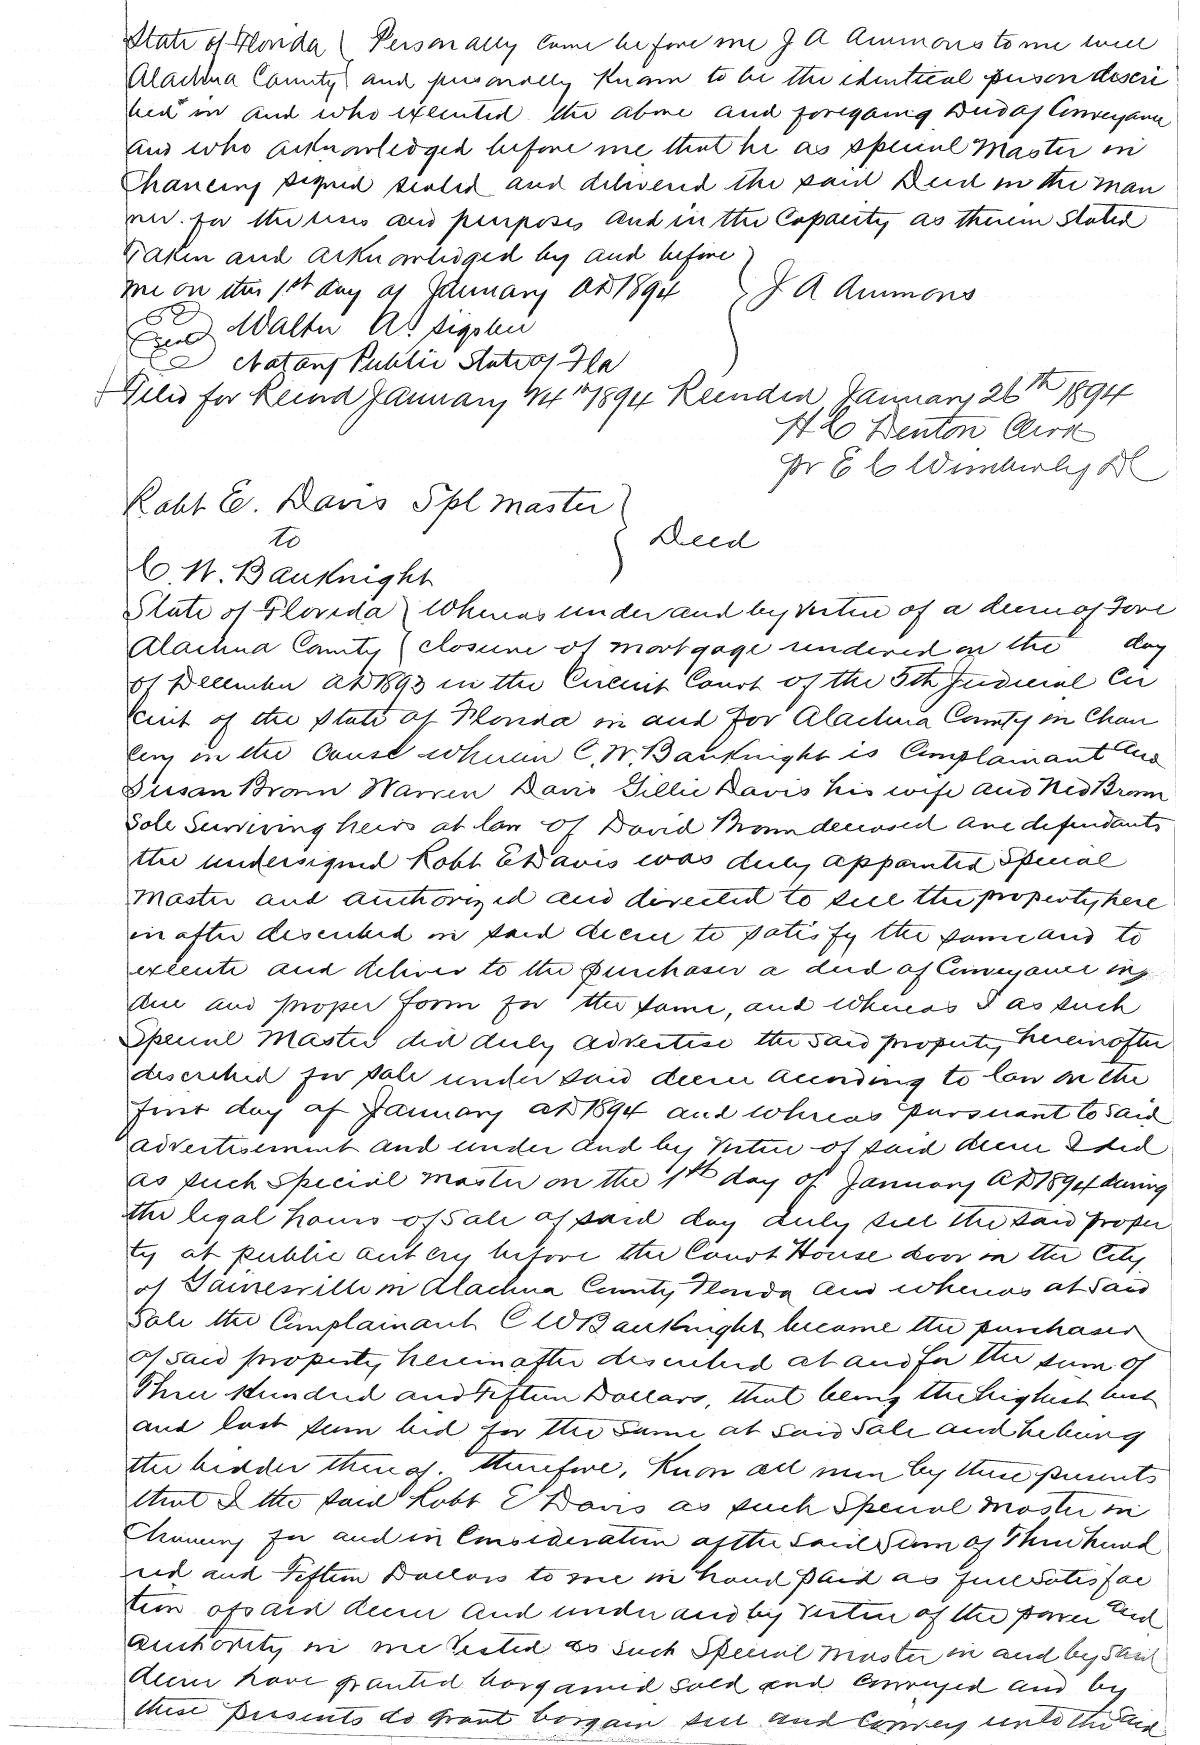 State of Florida ( Personally came before me J A Ammons to me well
Alachua County ( and personally Known to be the identical person descri
bed in and who executed the above and foregoing Deed of Conveyance
and who acknowledged before me that he as special Master in
Chancery signed sealed and delivered the said Deed in the man
ner for the uses and purposes and in the Capacity as therein stated
Taken and acknowledged by and before
me on this 1st day of January AD 1894 J A Ammons
Seal Walter A.
Notary Public State of Fla
Filed for Record January 1894 Recorded January 26th 1894
H C Denton Clerk
pr E C Wimberly DC
Robt E. Davis Spl Master
to Deed
C. W. Bauknight
State of Florida ( Whereas under and by virtue of a decree of Fore
Alachua County ( closure of mortgage rendered on the day
of December AD 1893 in the Circuit Court of the 5th Judicial Cir
cuit of the State of Florida in and for Alachua County in Chan
cery in the cause wherein C. W. Bauknight is Complainant and
Susan Brown Warren Davis Gillie Davis his wife and Ned Brown
Sole Surviving heirs at law of David Brown deceased are defendants
the undersigned Robt E Davis was duly appointed Special
Master and authorized and directed to sell the property here
in after described in said decree to satisfy the same and to
execute and deliver to the purchaser a deed of Conveyance in
due and proper form for the same, and whereas I as such
Special Master did duly advertise the said property hereinafter
described for sale under said decree according to law on the
first day of January AD 1894 and whereas pursuant to said
advertisement and under and by virtue of said decree I did
as such Special Master on the 1st day of January AD 1894 during
the legal hours of sale of said day duly sell the said proper
ty at public outcry before the Court House door in the City
of Gainesville in Alachua County Florida and whereas at said
Sale the Complainant C W Bauknight became the purchaser
of said property hereinafter described at and for the sum of
Three Hundred and Fifteen Dollars, that being the highest best
and last sum bid for the same at said Sale and he being
the bidder thereof. therefore, Know all men by these presents
that I the said Robt E Davis as such Special Master in
Chancery for and in Consideration of the said Sum of Three hund
red and Fifteen Dollars to me in hand paid as full satisfac
tion of said decree and under and by virtue of the power and
authority in me vested as such Special Master in and by said
decree have granted bargained sold and conveyed and by
these presents do grant bargain sell and convey unto the said